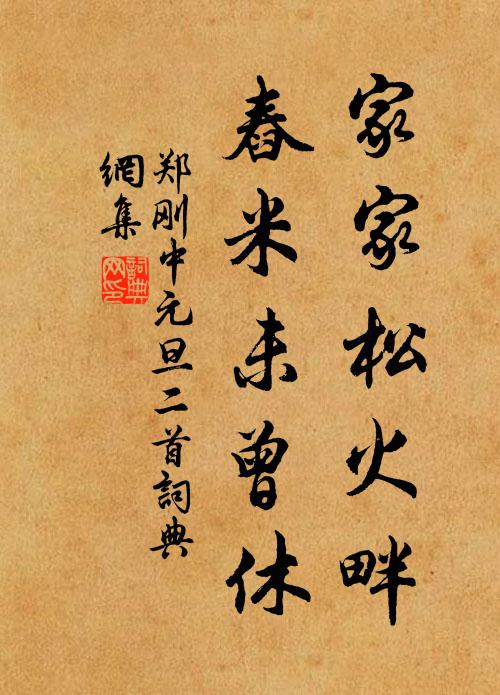 家家松火畔
舂米未曾休
郑刚中元旦二首詞典
網集
詞典
网印